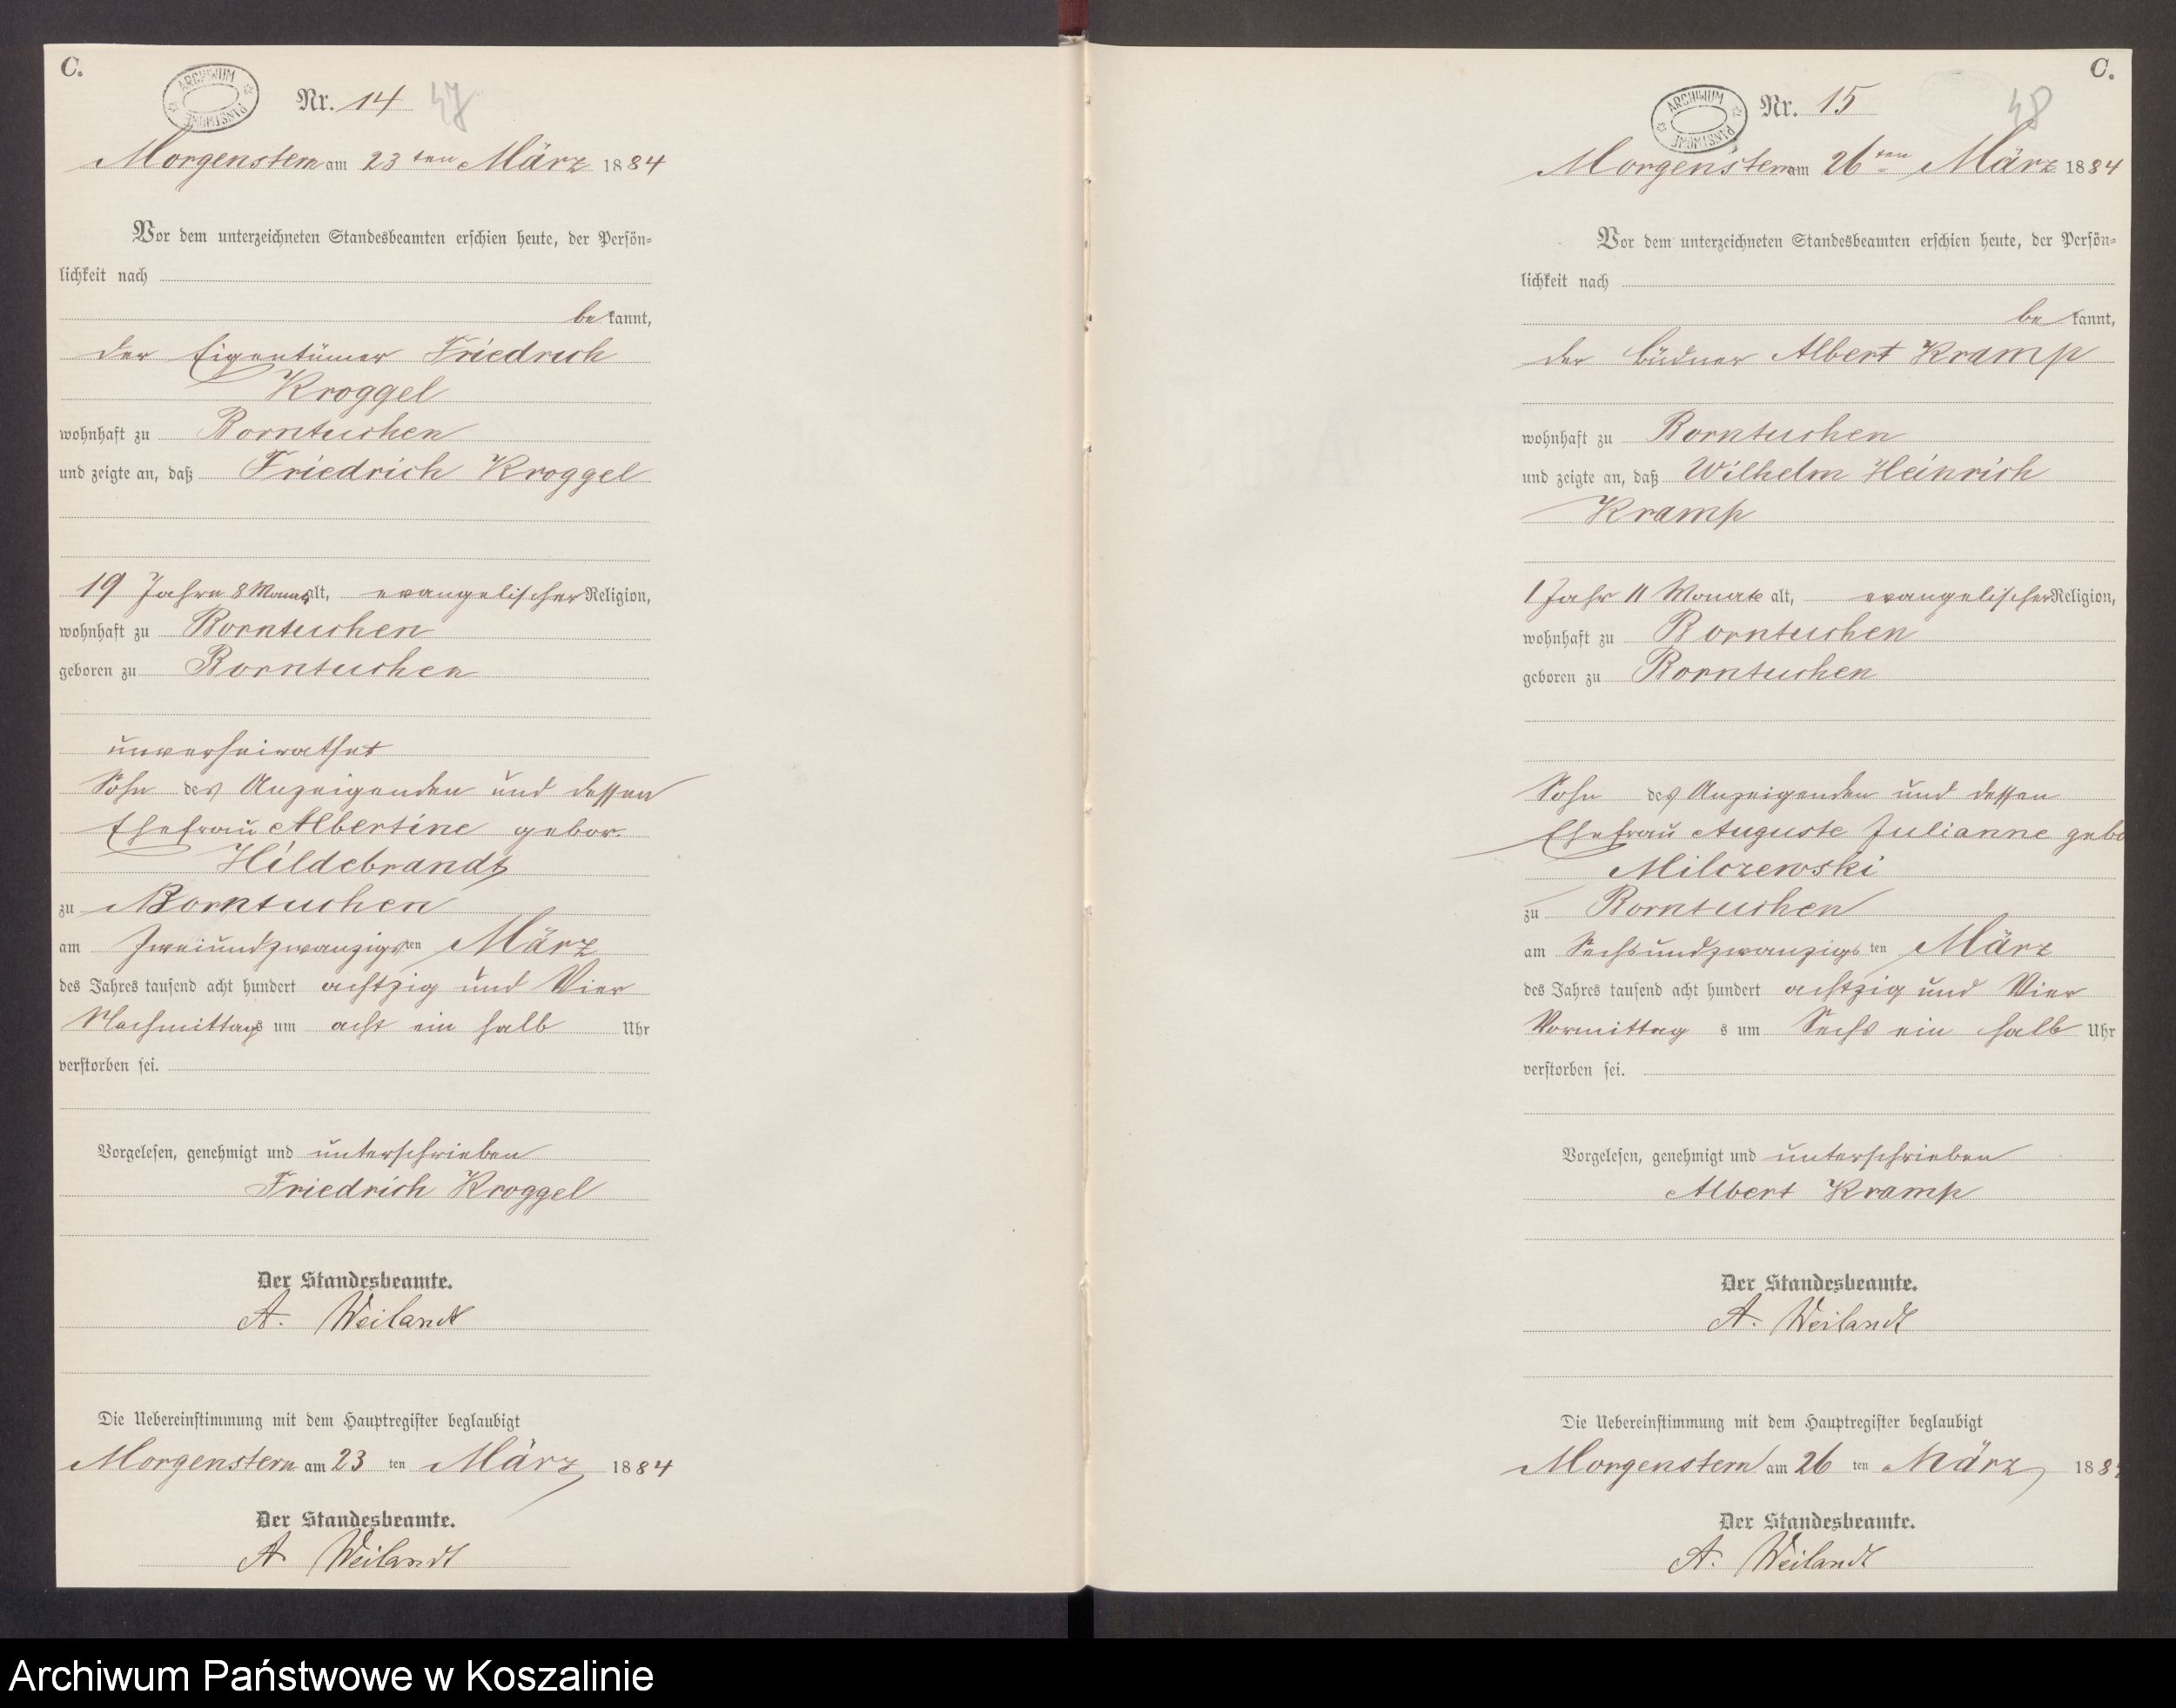 C.
ARCHIWUM PAŃSTWOWE
Nr. 14 47
Morgenstern am 23 ten März 1884
Vor dem unterzeichneten Standesbeamten erschien heute, der Persön-
lichkeit nach
bekannt,
der Eigentümer Friedrich
Kroggel
wohnhaft zu Borntuchen
und zeigte an, daß Friedrich Kroggel
19 Jahre 8 Monat alt, evangelischer Religion,
wohnhaft zu Borntuchen
geboren zu Borntuchen
unverheirathet
Sohn des Anzeigenden und dessen
Ehefrau Albertine gebor.
Hildebrandt
zu Borntuchen
am Zweiundzwanzigsten März
des Jahres tausend acht hundert achtzig und Vier
Nachmittags um acht ein halb Uhr
verstorben sei.
Vorgelesen, genehmigt und unterschrieben
Friedrich Kroggel
Der Standesbeamte.
A. Weilandt
Die Uebereinstimmung mit dem Hauptregister beglaubigt
Morgenstern am 23 ten März 1884
Der Standesbeamte.
A Weilandt
C.
ARCHIWUM PAŃSTWOWE
Nr. 15 48
Morgenstern am 26 ten März 1884
Vor dem unterzeichneten Standesbeamten erschien heute, der Persön-
lichkeit nach
bekannt,
der Büdner Albert Kramp
wohnhaft zu Borntuchen
und zeigte an, daß Wilhelm Heinrich
Kramp
1 Jahr 11 Monate alt, evangelischer Religion,
wohnhaft zu Borntuchen
geboren zu Borntuchen
Sohn des Anzeigenden und dessen
Ehefrau Auguste Julianne gebo
Milczewski
zu Borntuchen
am Sechsundzwanzigsten März
des Jahres tausend acht hundert achtzig und Vier
Vormittags um Sechs ein halb Uhr
verstorben sei.
Vorgelesen, genehmigt und unterschrieben
Albert Kramp
Der Standesbeamte.
A. Weilandt
Die Uebereinstimmung mit dem Hauptregister beglaubigt
Morgenstern am 26 ten März 188
Der Standesbeamte.
A. Weilandt
Archiwum Państwowe w Koszalinie